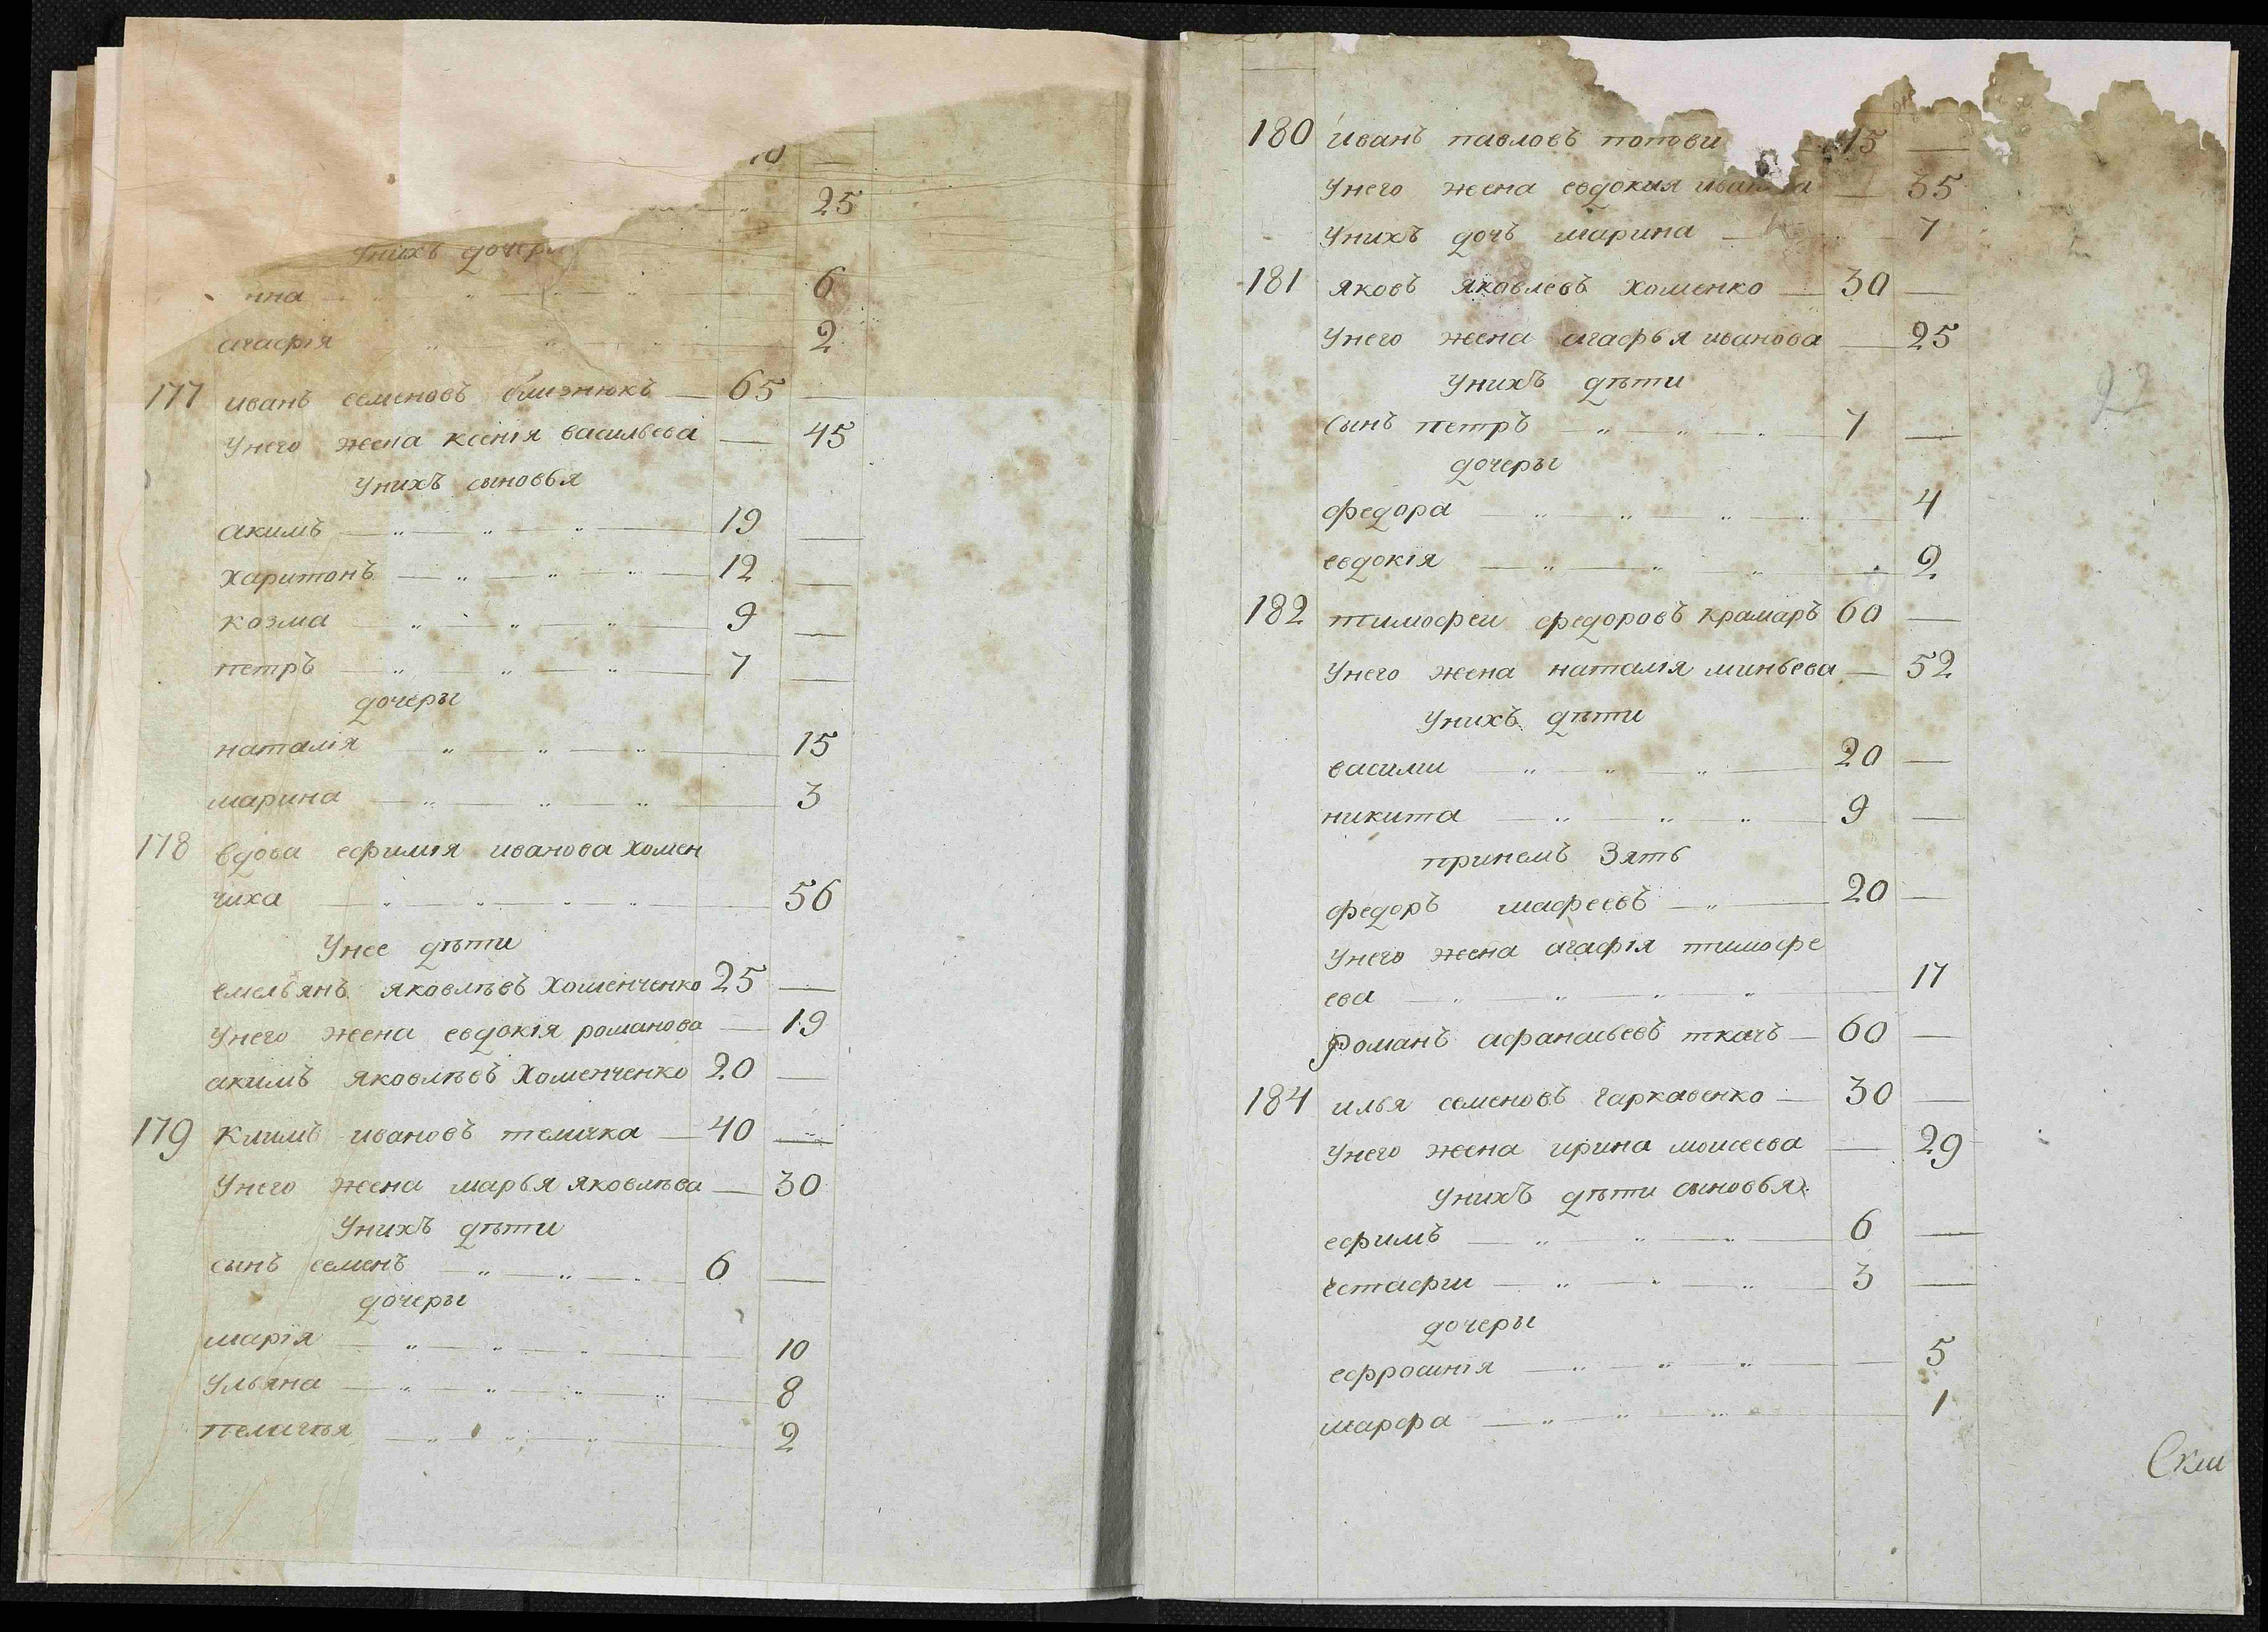 25
Унихъ дочери
нна 6
агафія 2
177 иванъ семеновъ близнюкъ 65 —
Унего жена ксенія васильева — 45
Унихъ сыновья
акимъ 19 —
харитонъ 12 —
козма 9 —
петръ 7 —
дочеры
наталія 15
марина 3
178 вдова ефимія иванова хомен
чиха 56
Унее дѣти
емельянъ яковлѣвъ Хоменченко 25 —
Унего жена евдокія романова — 19
акимъ яковлѣвъ Хоменченко 20 —
179 климъ ивановъ теличка — 40 —
Унего жена марья яковлѣва — 30
Унихъ дѣти
сынъ семенъ 6 —
дочеры
марія 10
Ульяна 8
пелагѣя 2
180 иванъ павловъ попови 15 —
Унего жена евдокия — 35
Унихъ дочъ марина — 7
181 яковъ яковлевъ хоменко — 30 —
Унего жена агафья иванова — 25
Унихъ дѣти
сынъ петръ 7 —
дочеры
федора 4
евдокія 2
182 тимофеи федоровъ крамаръ 60 —
Унего жена наталія миньева — 52
Унихъ дѣти
васили 20 —
никита 9 —
принемъ Зять
федоръ мафеевъ 20 —
Унего жена агафія тимофе
ева 17
Романъ афанасьевъ ткачъ — 60 —
184 илья семеновъ гаркавенко — 30 —
Унего жена ирина моисеева — 29
Унихъ дѣти сыновья
ефимъ 6 —
естафи 3 —
дочеры
ефросинія 5
марфа 1
22